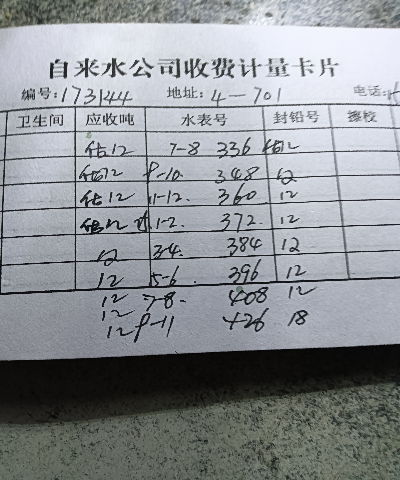 自来水公司收费计量卡片
编号:173144 地址:4-701 电话:
卫生间 应收吨 水表号 封铅号 擦校
估12 7-8 336 估12
估12 9-10. 348 12
估12 11-12. 360 12
估12 1-2. 372. 12
12 3-4. 384 12
12 5-6. 396 12
12 7-8. 408 12
12
12 9-11 426 18